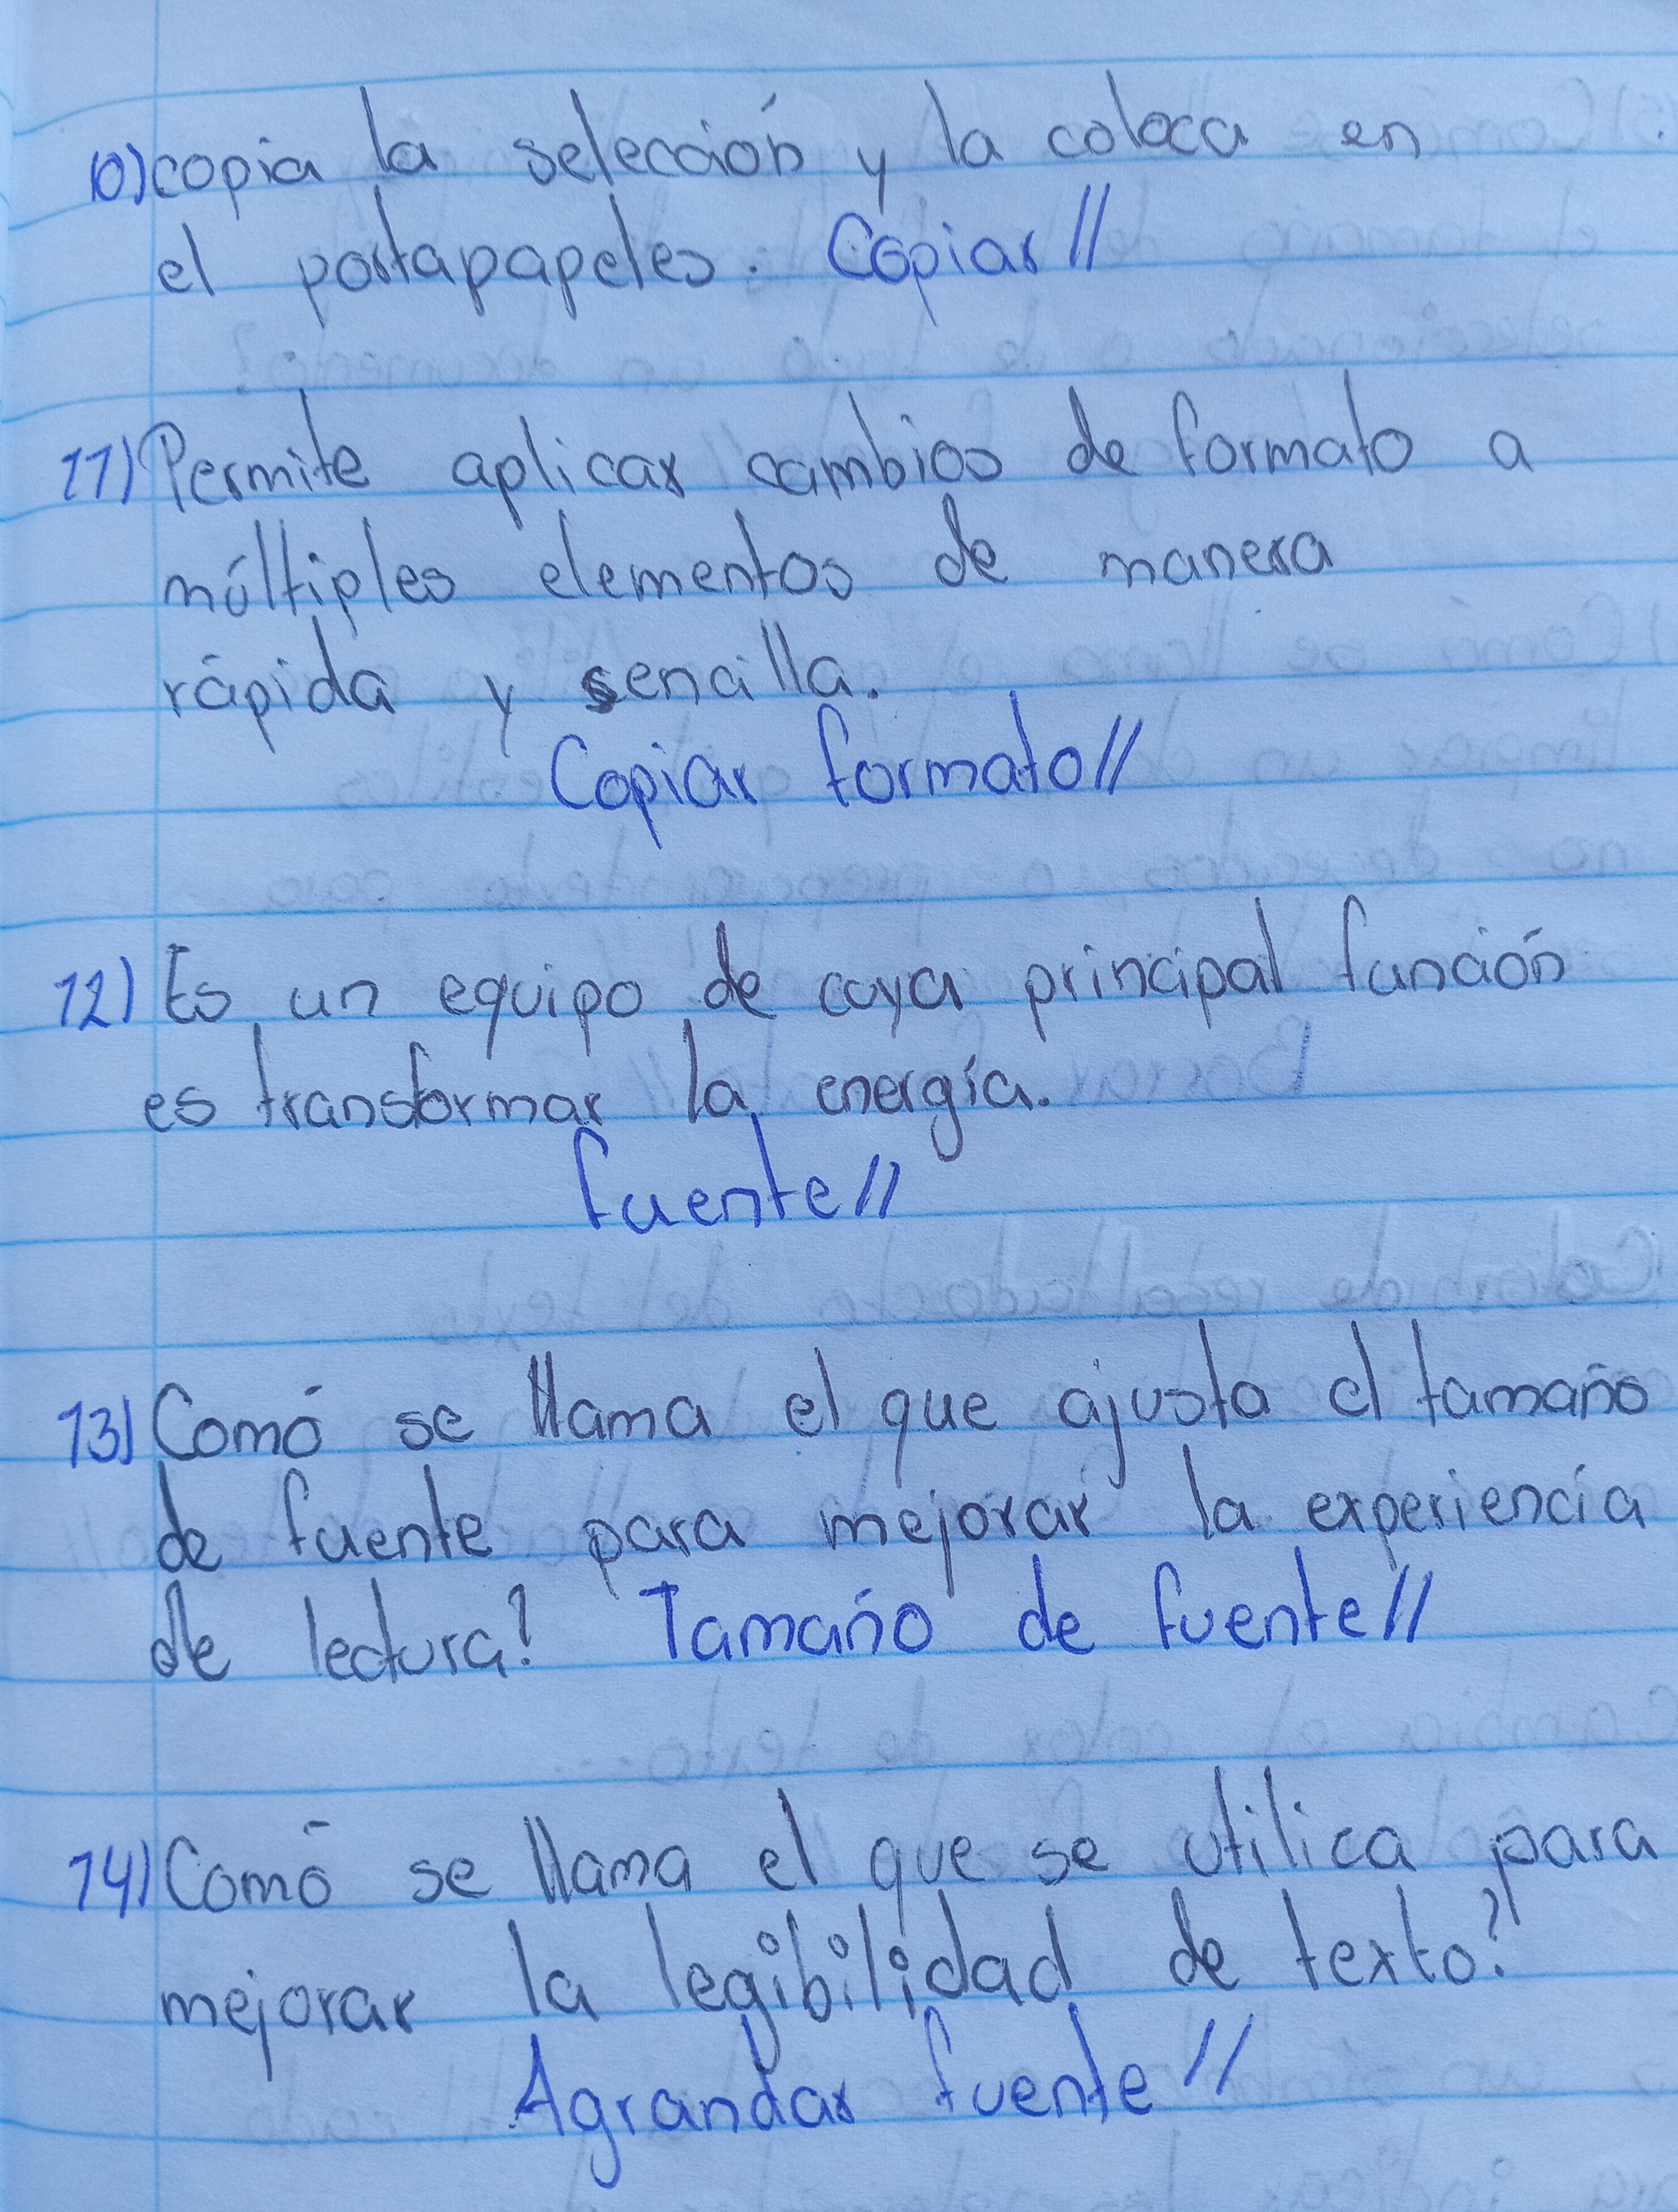 10) copia la selección y la coloca en
el portapapeles. Copiar//
11) Permite aplicar cambios de formato a
múltiples elementos de manera
rápida y sencilla.
Copiar formato//
12) Es un equipo de cuya principal función
es transformar la energía.
fuente//
13) Comó se llama el que ajusta el tamaño
de fuente para mejorar la experiencia
de lectura? Tamaño de fuente//
14) Comó se llama el que se utilica para
mejorar la legibilidad de texto?
Agrandar fuente//